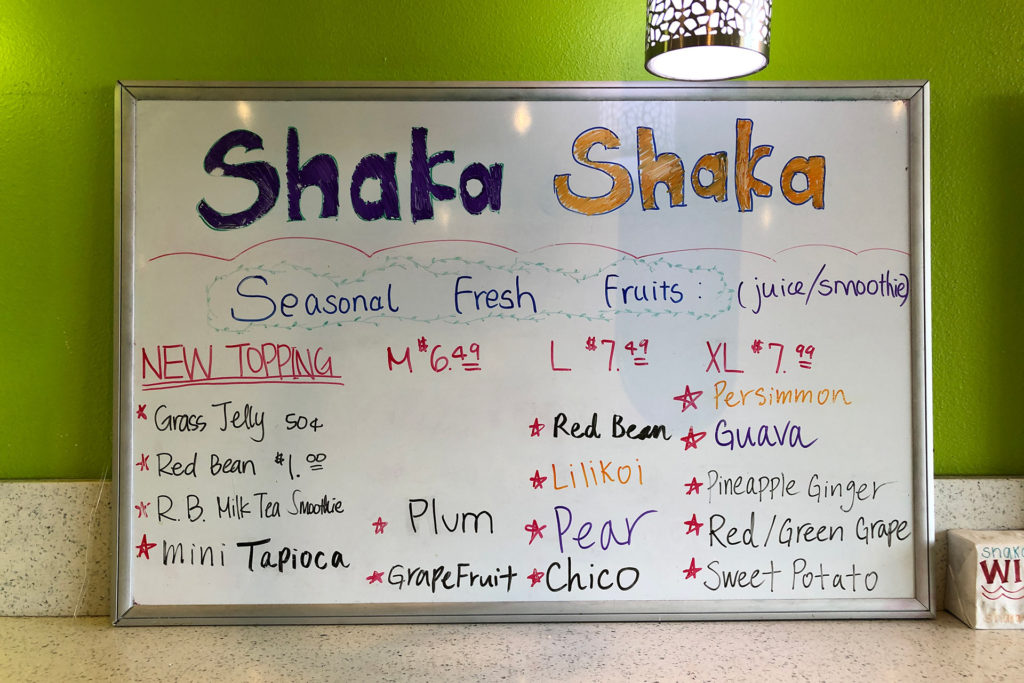 Shaka Shaka
Seasonal Fresh Fruits: (juice/smoothie)
NEW TOPPING
Grass Jelly 50¢
Red Bean $1.00
R.B. Milk Tea Smoothie
mini Tapioca
M $6.49
Plum
GrapeFruit
L $7.49
Red Bean
Lilikoi
Pear
Chico
XL $7.99
Persimmon
Guava
Pineapple Ginger
Red/Green Grape
Sweet Potato
shaka
WI